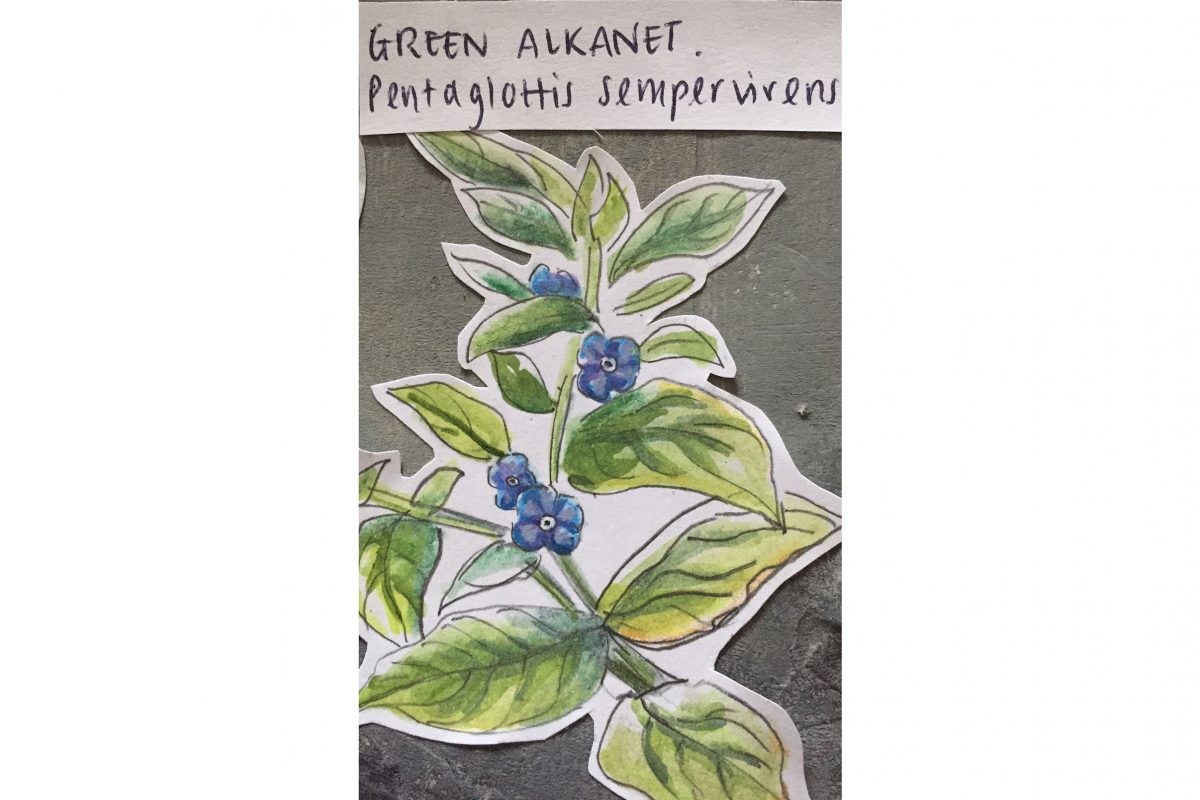 GREEN ALKANET.
Pentaglottis sempervirens